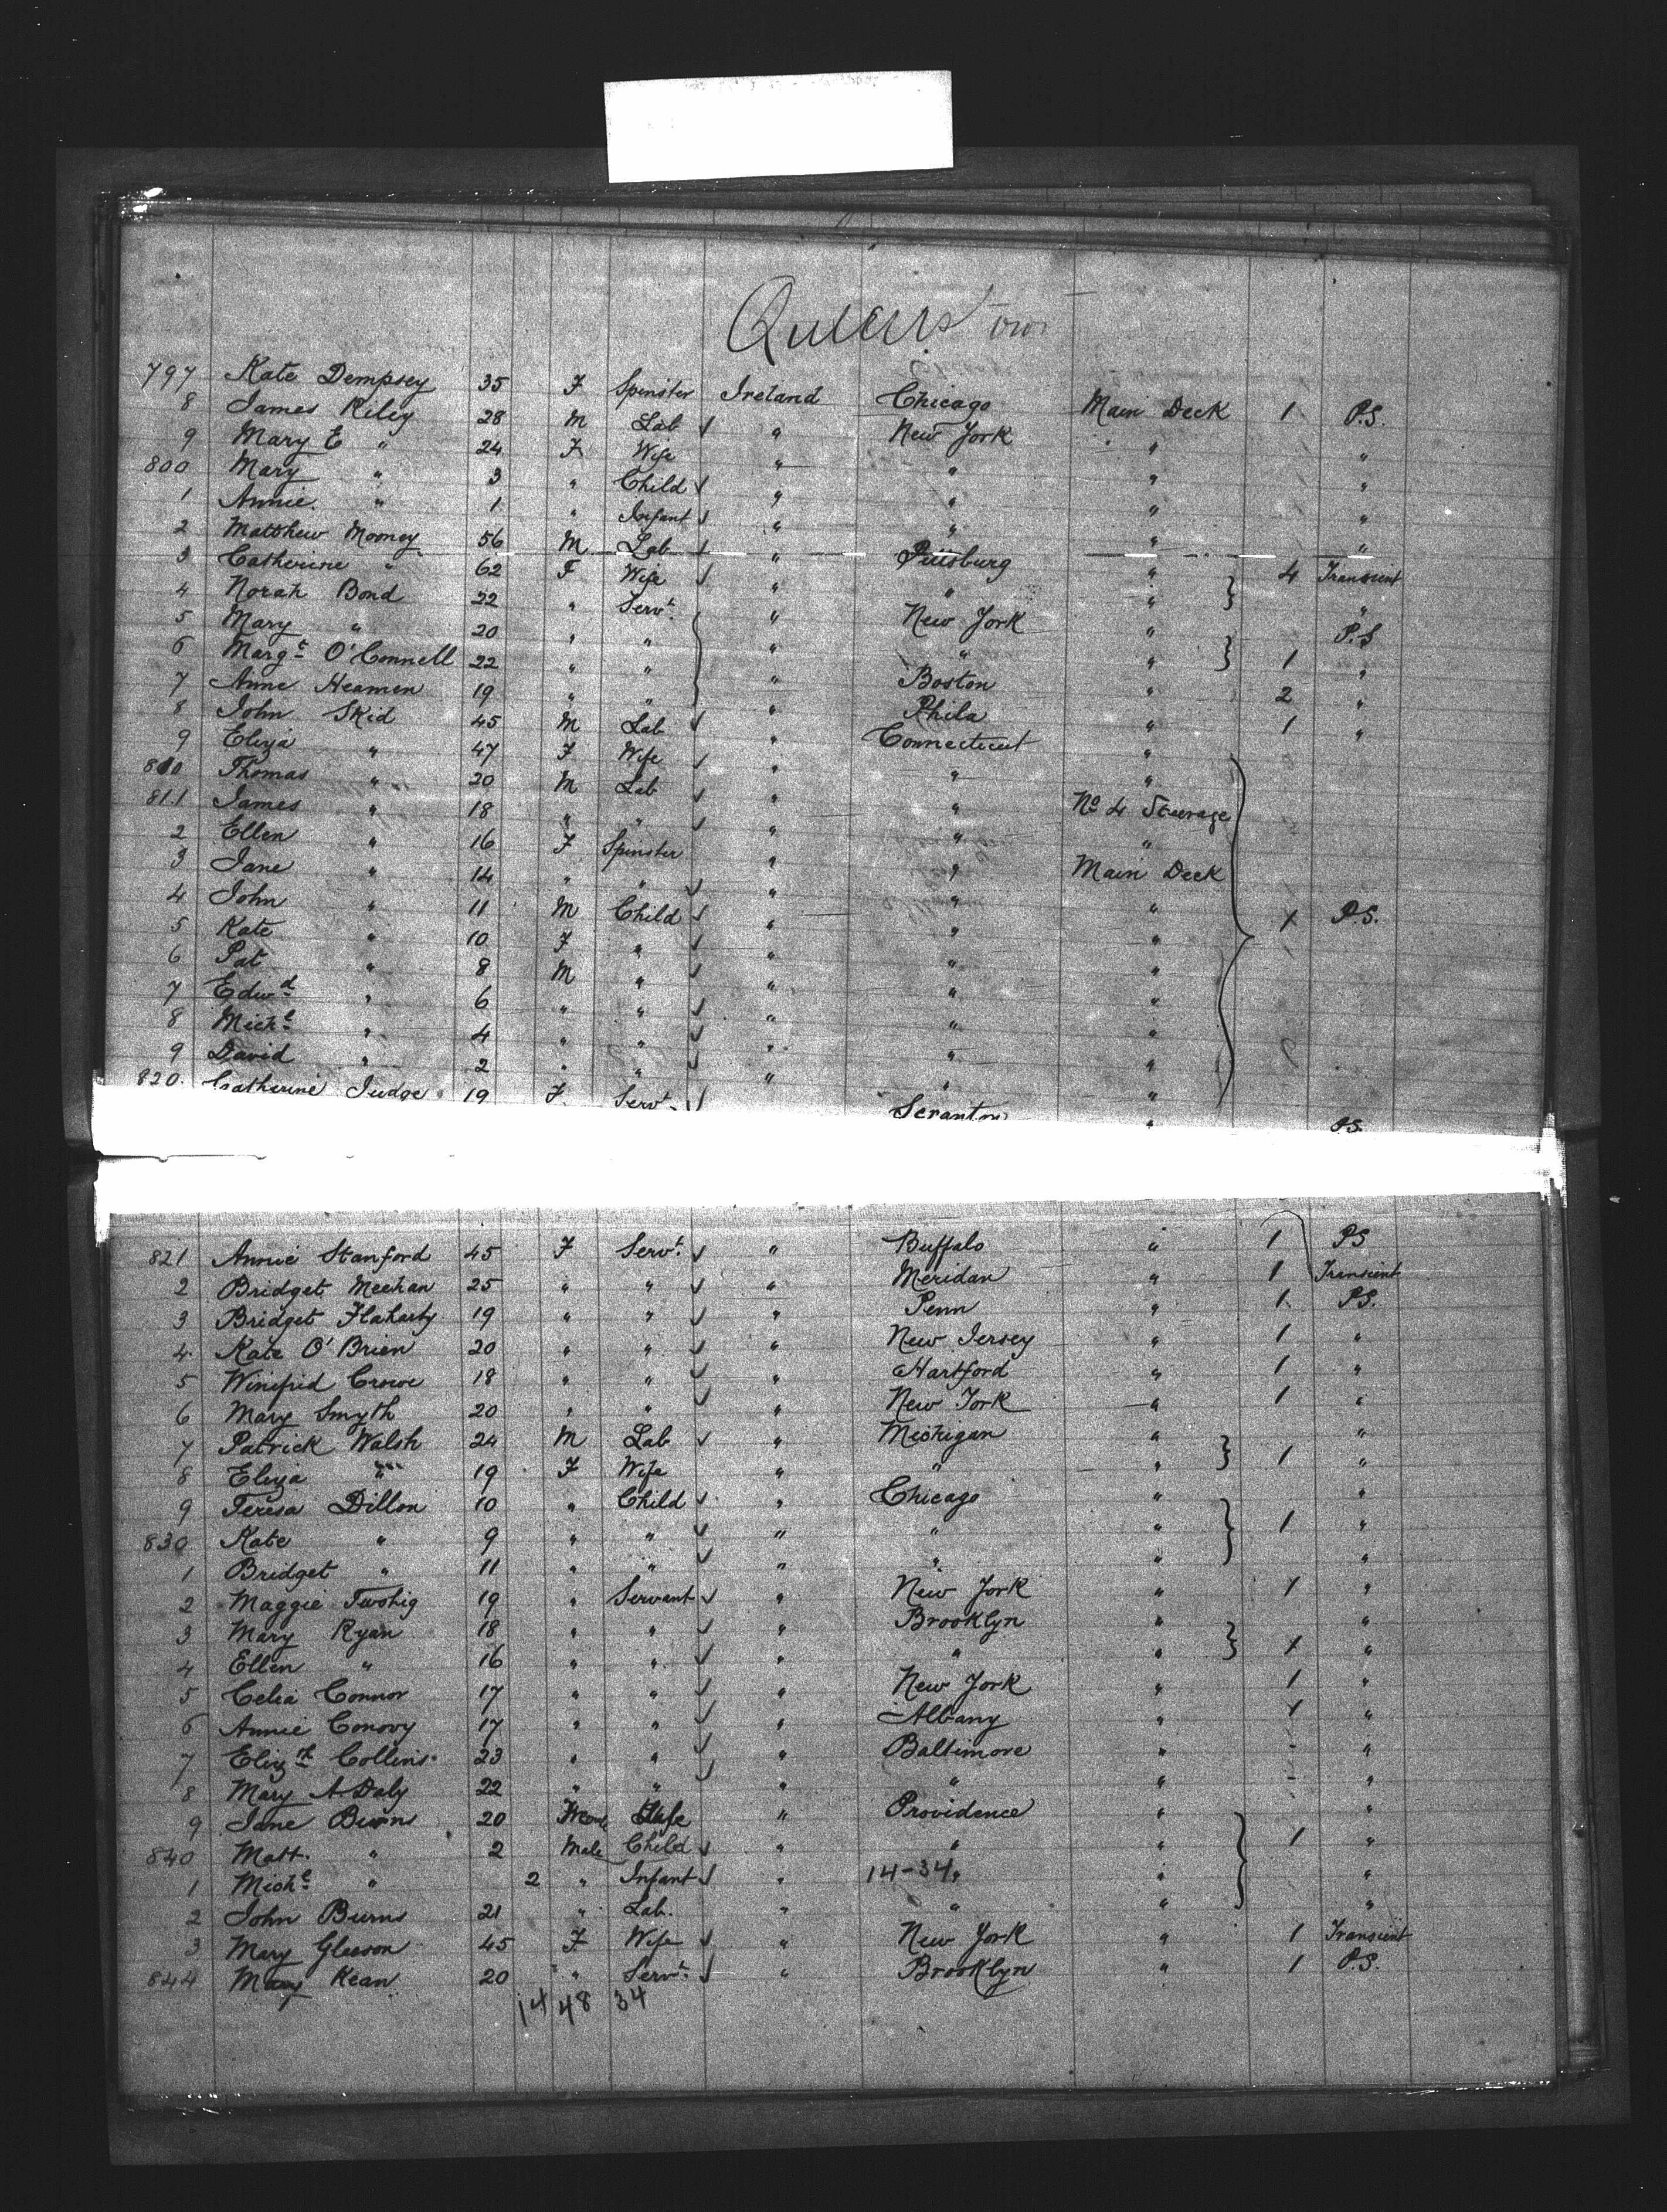 Queenstown
797 Kate Dempsey 35 F Spinster Ireland Chicago Main Deck 1 P.S.
8 James Riley 28 M Lab " New York " "
9 Mary E " 24 F Wife " " " "
800 Mary " 3 " Child " " " "
1 Annie " 1 " Infant " " " "
2 Matthew Mooney 56 M Lab " Pittsburg " 4 Transient
3 Catherine " 62 F Wife " " " "
4 Norah Bond 22 " Servt. " New York " P.S
5 Mary " 20 " " " " " 1 "
6 Margt O'Connell 22 " " " Boston " 2 "
7 Anne Heamen 19 " " " Phila " 1 "
8 John Skid 45 M Lab " Connecticut "
9 Eliza " 47 F Wife " " "
810 Thomas " 20 M Lab " " No 4 Steerage
811 James " 18 " " " " "
2 Ellen " 16 F Spinster " " Main Deck
3 Jane " 14 " " " " "
4 John " 11 M Child " " " 1 P.S.
5 Kate " 10 F " " " "
6 Pat " 8 M " " " "
7 Edwd " 6 " " " " "
8 Michl " 4 " " " " "
9 David " 2 " " " " "
820 Catherine Judge 19 F Servt. Scranton " P.S.
821 Annie Stanford 45 F Servt. " Buffalo " 1 PS
2 Bridget Meehan 25 " " " Meridan " 1 Transient
3 Bridget Flaharty 19 " " " Penn " 1 PS.
4 Kate O'Brien 20 " " " New Jersey " 1 "
5 Winifrid Crowe 18 " " " Hartford " 1 "
6 Mary Smyth 20 " " " New York " 1 "
7 Patrick Walsh 24 M Lab " Michigan " "
8 Eliza " 19 F Wife " " " 1 "
9 Teresa Dillon 10 " Child " Chicago " "
830 Kate " 9 " " " " " 1 "
1 Bridget " 11 " " " " " "
2 Maggie Twohig 19 " Servant " New York " 1 "
3 Mary Ryan 18 " " " Brooklyn " "
4 Ellen " 16 " " " " " 1 "
5 Celia Connor 17 " " " New York " 1 "
6 Annie Conovy 17 " " " Albany " 1 "
7 Elizth Collins 23 " " " Baltimore " - "
8 Mary A Daly 22 " " " " " - "
9 Jane Burns 20 " Providence " "
840 Matt. " 2 Male Child " " " 1 "
1 Michl " 2 " Infant " 14-34 " " "
2 John Burns 21 " Lab. " " " "
3 Mary Gleeson 45 F Wife " New York " 1 Transient
844 Mary Kean 20 " Servt. " Brooklyn " 1 P.S.
14 48 34